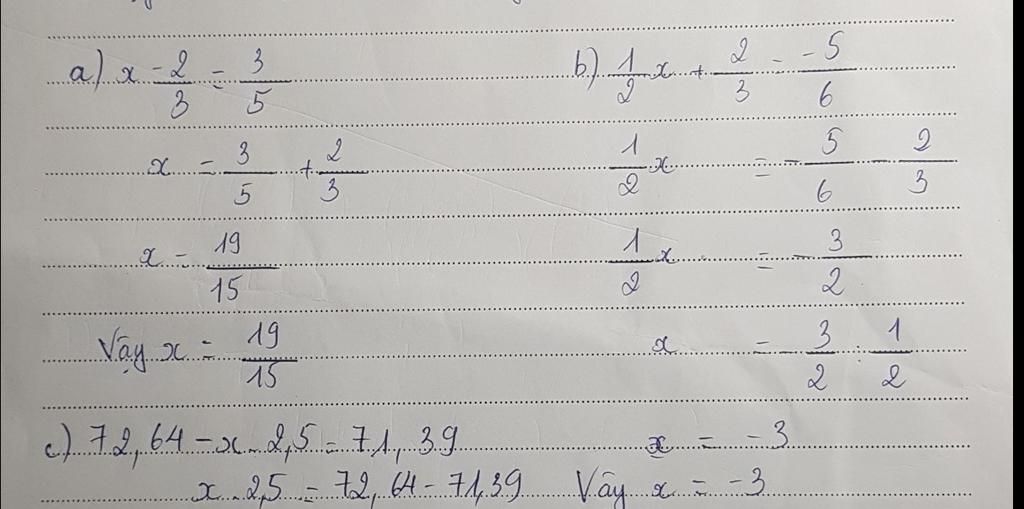 a) x - 2/3 = 3/5
x = 3/5 + 2/3
x = 19/15
Vậy x = 19/15
b) 1/2 x + 2/3 = -5/6
1/2 x = - 5/6 - 2/3
1/2 x = - 3/2
x = - 3/2 : 1/2
x = -3
Vậy x = -3
c) 72,64 - x . 2,5 = 71,39
x . 2,5 = 72,64 - 71,39